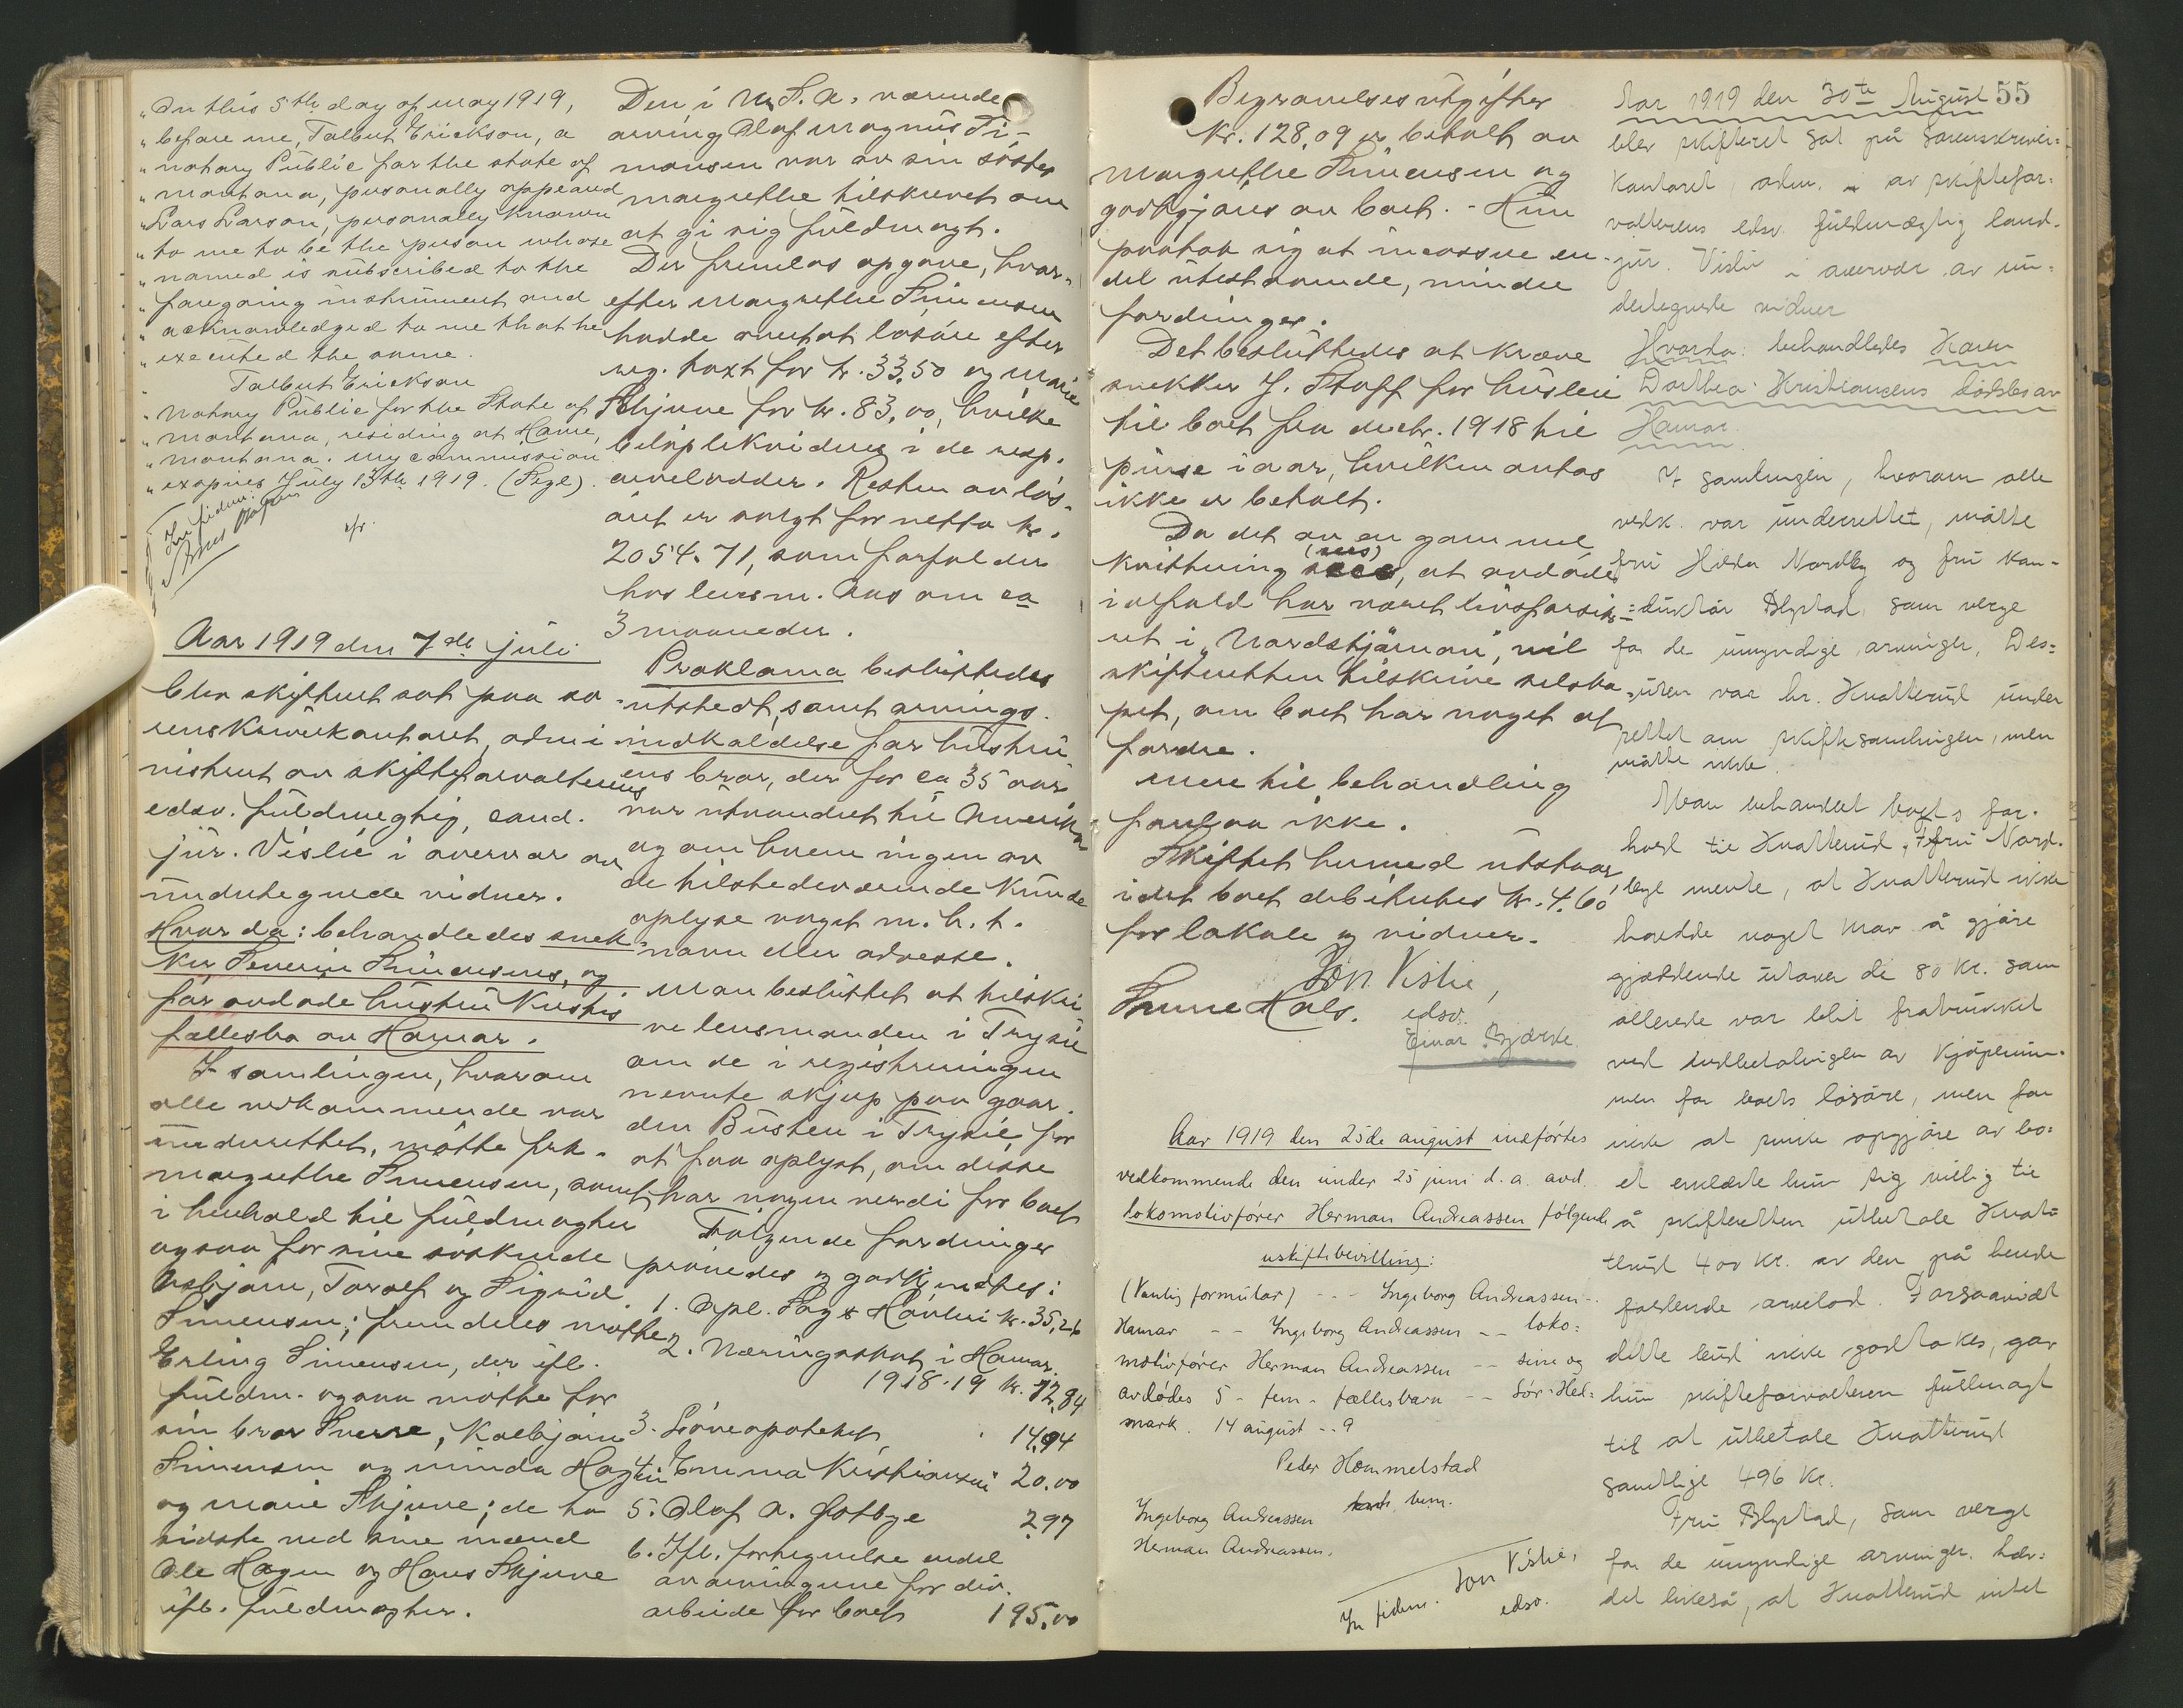 „On this 5th day of may 1919,
„before me, Talbut Erickson, a
„notary Public for the state of
„montana, personally appeared
„Lars Larson, personally known
„to me to be the person whose
„named is subscribed to the
„foregoing instrument and
„acknowledged to me that he
„executed the same.
Talbut Erickson
„Notary Public for the State of
„montana, residing at Havre,
„montana. my commission
„expires July 13th 1919. (Segl).
In fidem:
Aar 1919 den 7de juli
blev skifteret sat paa so-
renskriverkontoret, admi-
nistreret av skifteforvalterens
edsv. fuldmegtig, cand.
jur. Vislie i overvær av
undertegnede vidner.
Hvorda: behandledes snek-
ker Severin Simensens, og
før avdøde hustru Kristis
fællesbo av Hamar.
I samlingen, hvorom
alle vedkommende var
underrettet, møtte frk.
Margrethe Simensen, samt
i henhold til fuldmagter
ogsaa for sine søskende
Asbjørn, Torolf og Sigurd
Simensen; fremdeles møtte
Erling Simensen, der ifl.
fuldm. ogsaa møtte for
sin bror Sverre, Kolbjørn
Simensen og minda Hagen
og marie Skjune; de to
sidste ved sine mænd
Ole Hagen og Hans Skjune
ifl. fuldmagter.
Den i U. S. A. værende
arving Olaf Magnus Si-
monsen var av sin søster
margrethe tilskrevet om
at gi sig fuldmagt.
Der fremlas opgave, hvor-
efter Margrethe Simensen
hadde mottat løsøre efter
reg. takst for kr. 33,50 og Marie
Skjune for kr. 83,00, hvilke
beløp likvideres i de resp.
arvelodder. Resten av løs-
øret er solgt for netto kr.
2054.71, som forfalder
hos lensm. Aas om ca
3 maaneder.
Proklama besluttedes
utstedt, samt arvings-
indkaldelse for hustru-
ens bror, der for ca 35 aar
var utvandret til Amerika
og om hvem ingen av
de tilstedeværende kunde
oplyse noget m. h. t.
navn eller adresse.
Man besluttet at tilskri-
ve lensmanden i Trysil
om de i registreringen
nevnte skjøp paa gaar-
den Busten i Trysil, for
at faa oplyst, om disse
har nogen verdi for boet
Følgende fordringer
prøvedes og godkjendtes:
1. Opl. Sag & Høvleri kr. 35,26
2. Næringsskat i Hamar
1918-19 kr. 72,84
3. Løveapoteket 14,94
4. Emma Kristiansen 20,00
5. Olaf A. Gotbye 2,97
6. Ifl. fortegnelse endel
av arvingerne for div.
arbeide for boet 195,00
Begravelsesutgifter
kr. 128,09 er betalt av
Margrethe Simensen og
godtgjøres av boet. - Hun
paatok sig at incassere en-
del utestaaende, mindre
fordringer.
Det besluttedes at kræve
snekker J. Stoff for husleie
til boet fra decbr. 1918 til
pinse i aar, hvilken antas
ikke er betalt.
Da det av en gammel
kvittering (sees), at avdøde
ialfald har været livsforsik-
ret i „Nordstjärnan", vil
skifteretten tilskrive selska-
pet, om boet har noget at
fordre.
Mere til behandling
forelaa ikke.
Skiftet hermed utstaar,
idet boet debiteres kr. 4,60
for lokale og vidner.
Jon Vislie,
edsv.
Einar Bjærke
Aar 1919 den 25de august indførtes
vedkommende den under 25 juni d. a. avd.
lokomotivfører Herman Andreassen følgende
uskiftebevilling:
(Vanlig formular) - - - Ingeborg Andreassen -
Hamar - - Ingeborg Andreassen - - loko=
motivfører Herman Andreassen - - sine og
avdødes 5 - fem - fællesbarn - - Sør-Hed=
mark. 14 august - - 9
Peder Hommelstad
Ingeborg Andreassen
Herman Andreassen.
In fidem. Jon Vislie,
edsv.
55
Aar 1919 den 30te August
blev skifteret sat på sorenskriver=
kontoret, adm. av skiftefor-
valterens edsv. fuldmægtig cand.
jur. Vislie i overvær av un=
dertegnede vidner
Hvorda: behandledes Karen
Dorthea Kristiansens dødsbo av
Hamar.
I samlingen, hvorom alle
vedk. var underrettet, møtte
fru Hilda Nordby og fru kon-
duktør Blystad, som verge
for de umyndige arvinger, Des=
uten var hr. Knatterud under
rettet om skiftesamlingen, men
møtte ikke.
Man behandlet boets for-
hold til Knatterud, Fru Nord-
bye mente, at Knatterud ikke
hadde noget krav å gjøre
gjældende utover de 80 kr. som
allerede var blit fratrukket
ved indbetalingen av kjøpesum-
men for boets løsøre, men for
ikke at sinke opgjøre av bo=
et erklærte hun sig villig til
å skifteretten utbetale Knat=
terud 400 kr. av den på hende
faldende arvelod. Forsaavidt
dette bud ikke godtokes, gav
hun skifteforvalteren fullmagt
til at utbetale Knatterud
samtlige 496 kr.
Fru Blystad, som verge
for de umyndige arvinger, hæv=
det likeså, at Knatterud intet